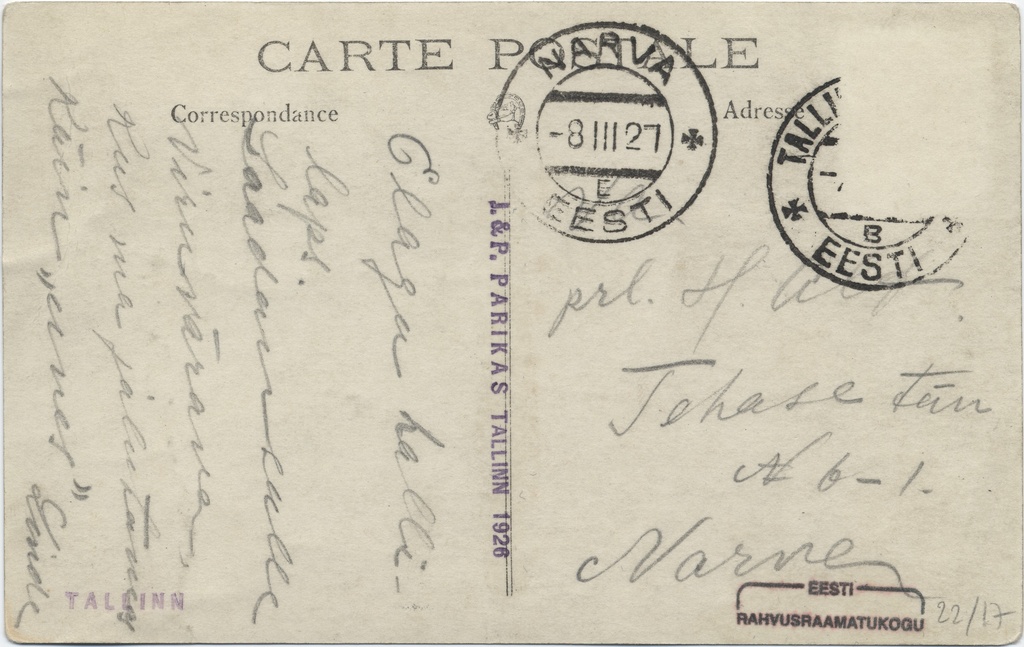 CARTE POSTALE
Correspondance
Adresse
NARVA
-8 III 27
E
EESTI
TALLI
B
EESTI
Elagu kalli-
laps.
Saadan sulle
Viruvärava,
Kus ma jalutamas
Käin „ennes” Linda
J. & P. PARIKAS TALLINN 1926
TALLINN
prl. H.
Tehase tän
N 6-1.
Narva
EESTI
RAHVUSRAAMATUKOGU
22/17